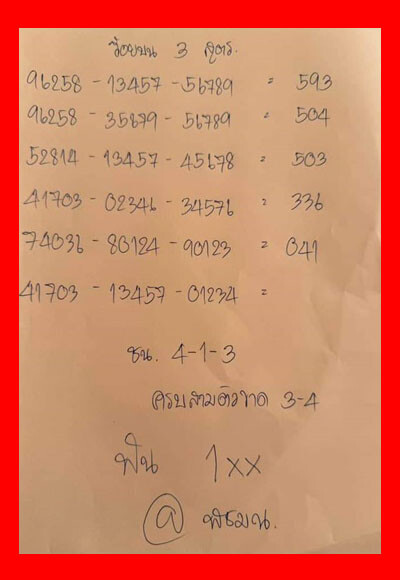 ร้อยบน 3 สูตร.
96258 - 13457 - 56789 = 593
96258 - 35879 - 56789 = 504
52814 - 13457 - 45678 = 503
41703 - 02346 - 34576 = 336
74036 - 80124 - 90123 = 041
41703 - 13457 - 01234 =
ชน. 4-1-3
ครบสามตัวขาด 3-4
ฟัน 1xx
@